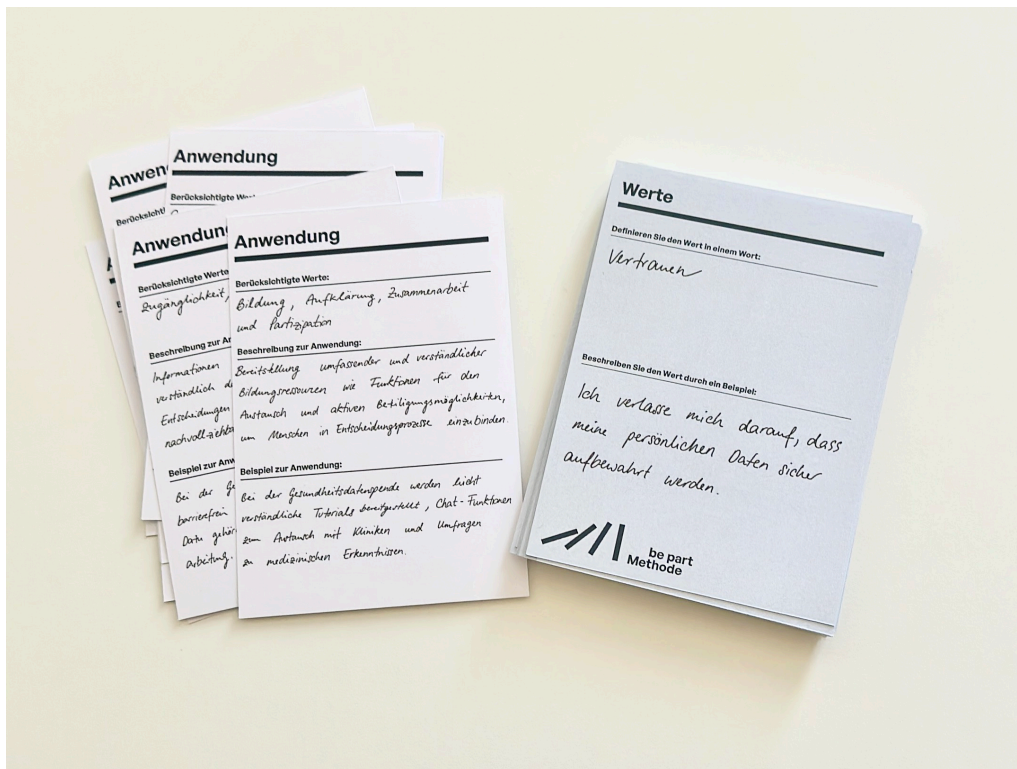 Anwen
Berücksicht
Anwendung
Berücksichtigte Wer
Anwendung
Berücksichtigte Werte
Zugänglichkeit,
Beschreibung zur An
Informationen
verständlich
Entscheidungen
nachvoll-ziehba
Beispiel zur Anw
Bei der Ge
barrierefrei
Dazu gehör
arbeitung.
Anwendung
Berücksichtigte Werte:
Bildung, Aufklärung, Zusammenarbeit
und Partizipation
Beschreibung zur Anwendung:
Bereitstellung umfassender und verständlicher
Bildungsressourcen wie Funktionen für den
Austausch und aktiven Beteiligungsmöglichkeiten,
um Menschen in Entscheidungsprozesse einzubinden.
Beispiel zur Anwendung:
Bei der Gesundheitsdatenspende werden leicht
verständliche Tutorials bereitgestellt, Chat-Funktionen
zum Austausch mit Kliniken und Umfragen
zu medizinischen Erkenntnissen.
Werte
Definieren Sie den Wert in einem Wort:
Vertrauen
Beschreiben Sie den Wert durch ein Beispiel:
Ich verlasse mich darauf, dass
meine persönlichen Daten sicher
aufbewahrt werden.
be part
Methode